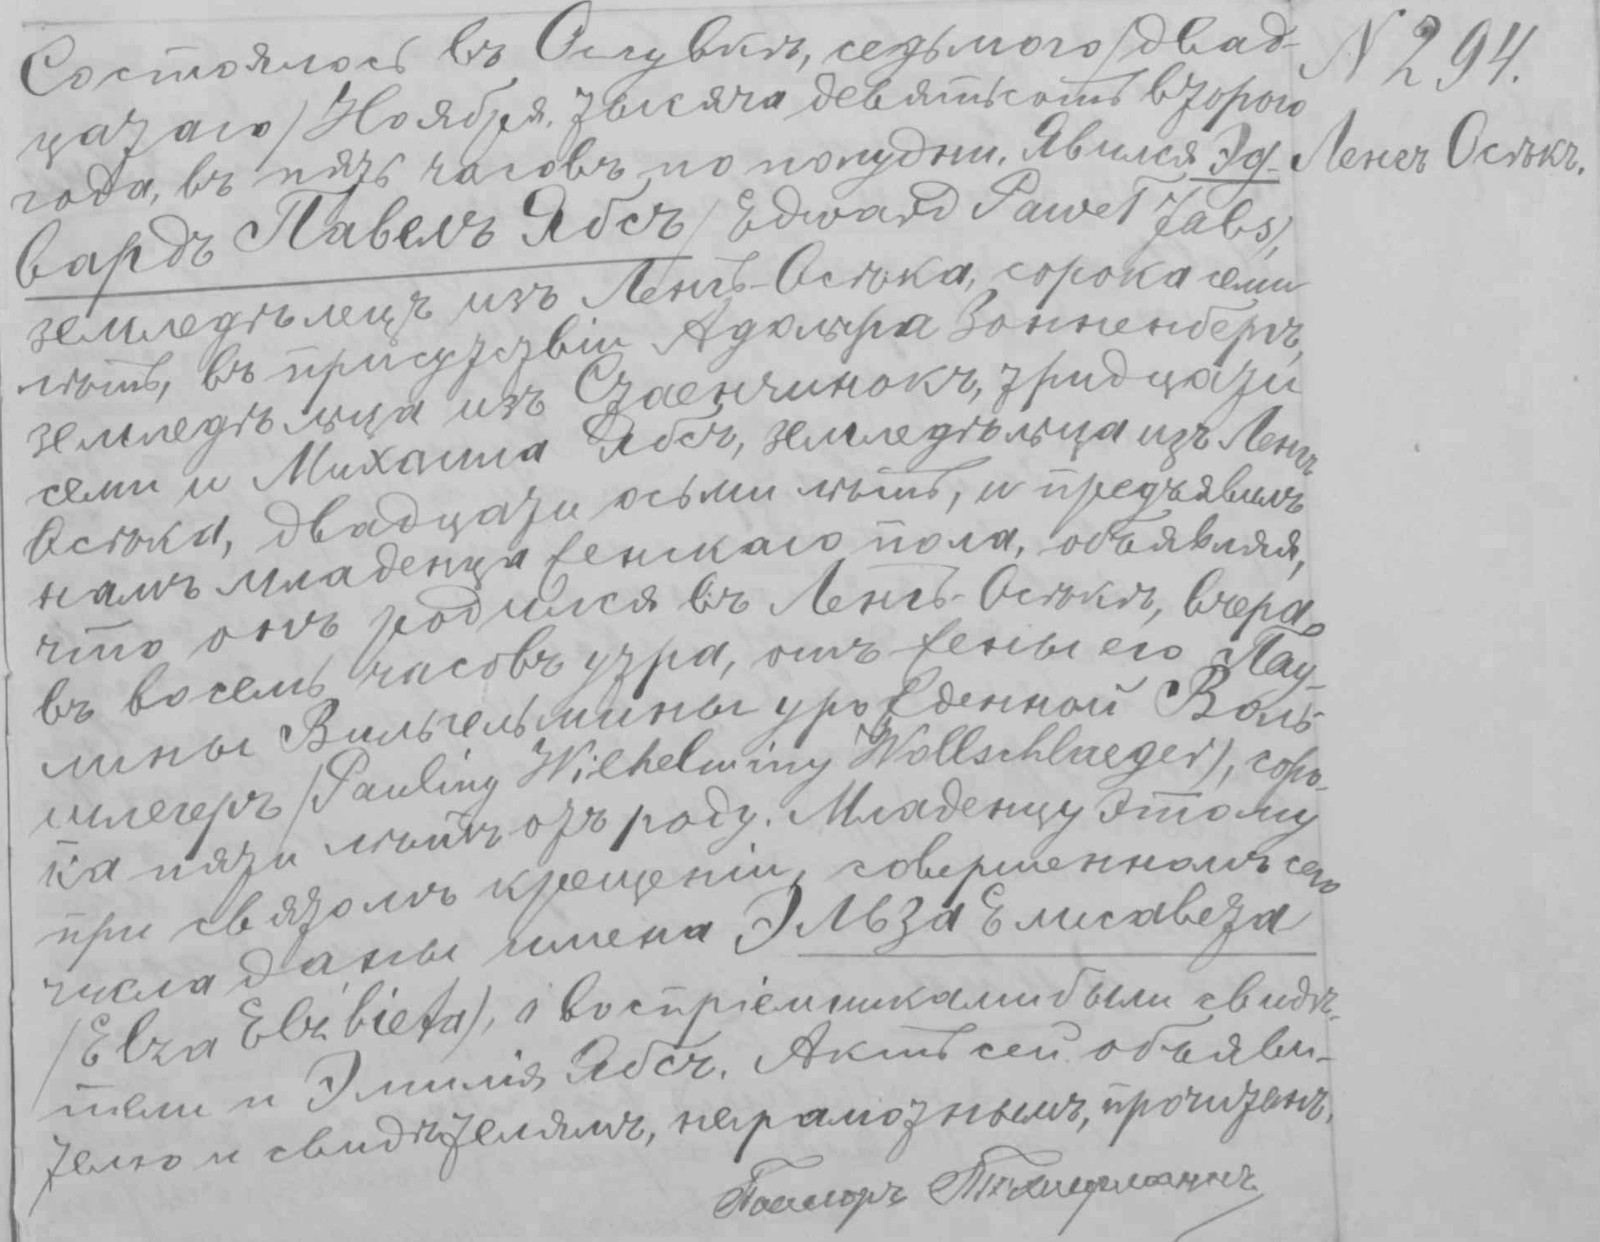 N 294.
Ленгъ Осѣкъ.
Состоялось въ Ослувкѣ, седьмого /двад-
цатаго/ Ноября, тысяча девятьсотъ второго
года, въ пять часовъ по полудни. Явился Эд-
вардъ Павелъ Ябсъ /Edward Paweł Jabs/,
земледѣлецъ изъ Ленгъ-Осѣка, сорока семи
лѣтъ, въ присутствіи Адольфа Зонненбергъ,
земледѣльца изъ, тридцати
семи и Михаила Ябсъ, земледѣльца изъ Ленгъ
Осѣка, двадцати осьми лѣтъ, и предъявилъ
намъ младенца женскаго пола, объявляя,
что онъ родился въ Ленгъ-Осѣкѣ, вчера,
въ восемь часовъ утра, отъ жены его Пау-
лины Вильгельмины урожденной Воль-
шлегеръ /Pauliny Wilhelminy Wollschlaeger/, соро-
ка пяти лѣтъ отъ роду. Младенцу этому
при святомъ крещеніи, совершенномъ сего
числа даны имена Эльза Елисавета
/Elza Elżbieta/, а воспріемниками были свидѣ-
тели и Эмилія Ябсъ. Актъ сей объяви-
телю и свидѣтелямъ, неграмотнымъ, прочитанъ.
Пасторъ